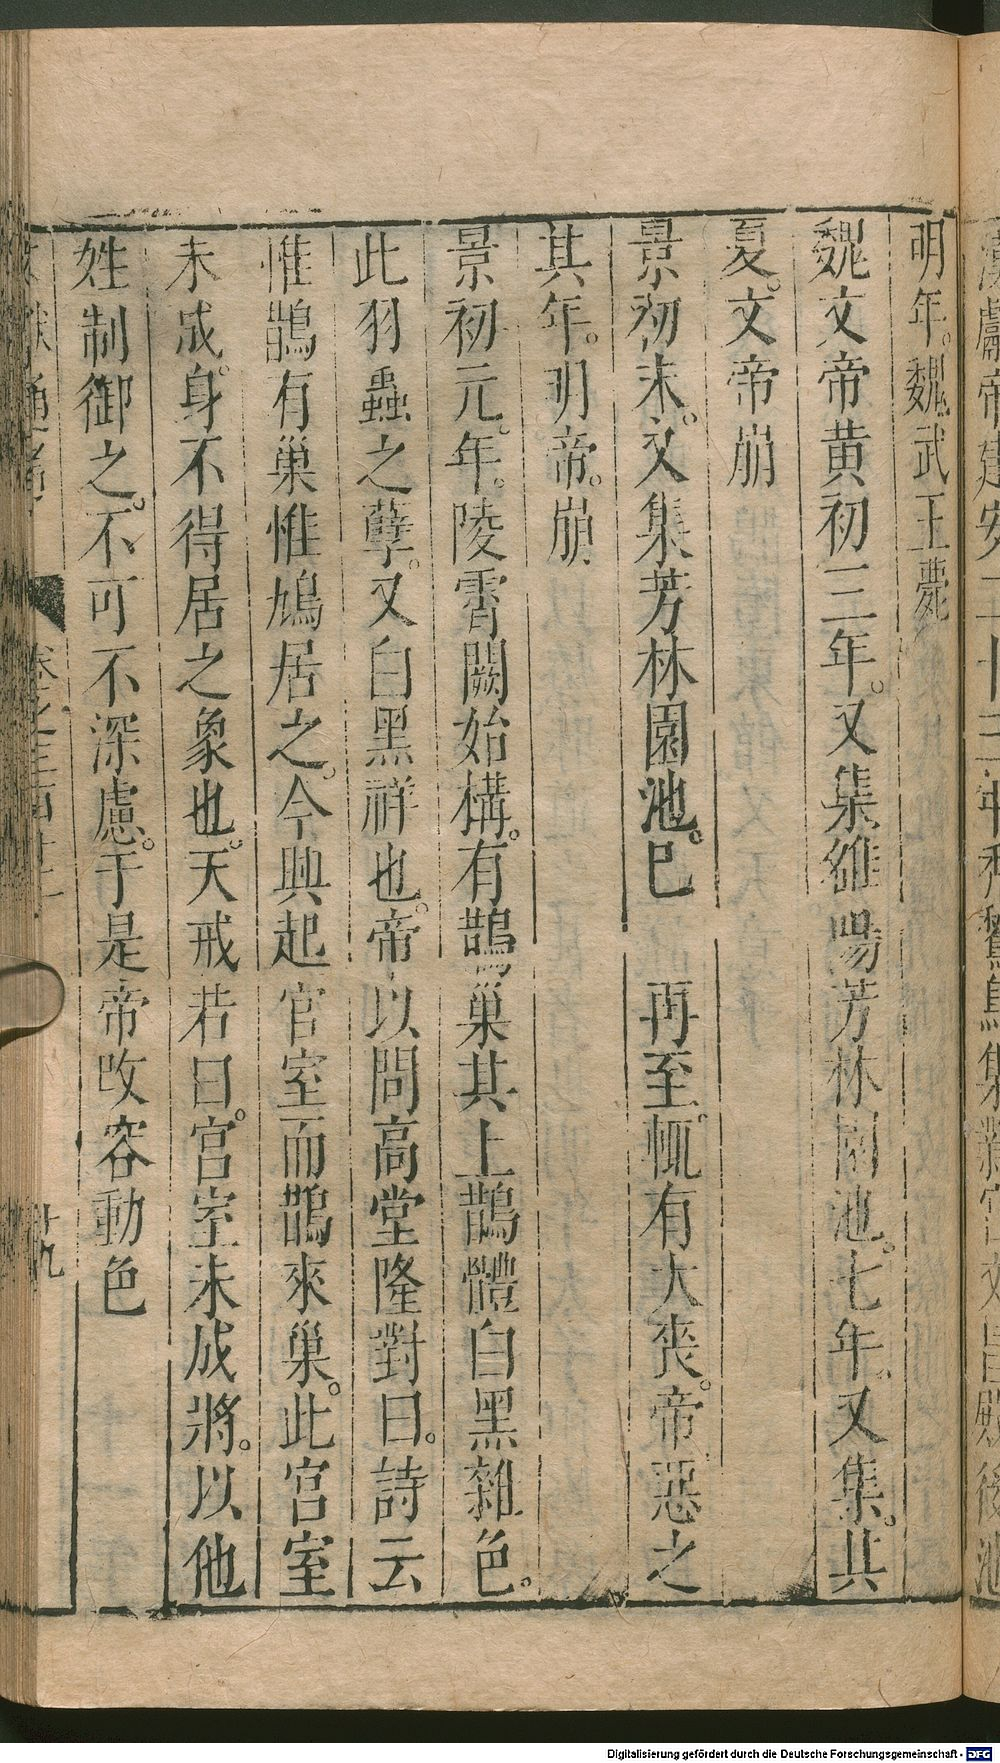 明年。魏武王薨
魏文帝黄初三年。又集雒陽芳林園池。七年。又集。其
夏。文帝崩
景初末。又集芳林園池。已 再至。輒有大喪。帝惡之
其年。明帝。崩
景初元。年。陵霄闕始構。有鵲巢其上鵲體白黑雜色。
此羽蟲之孽。又白黑祥也。帝以問高堂隆對曰。詩云
惟鵲有巢惟鳩居之。今興起宫室而鵲來巢。此宫室
未成。身不得居之象也。天戒若曰。宫室未成將。以他
姓制御之。不可不深慮。于是帝改容動色
文獻通考 卷之三百十二
廿九
漢獻帝建安二十三年秃鶖鳥集鄴宫文昌殿後池
Digitalisierung gefördert durch die Deutsche Forschungsgemeinschaft - DFG